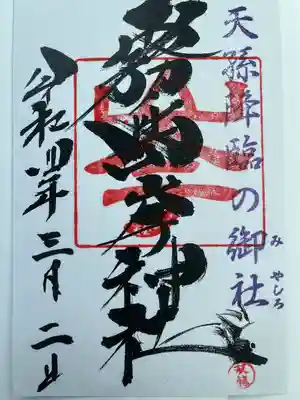 天孫降臨の御社
みやしろ
霧島岑神社
令和四年三月二日